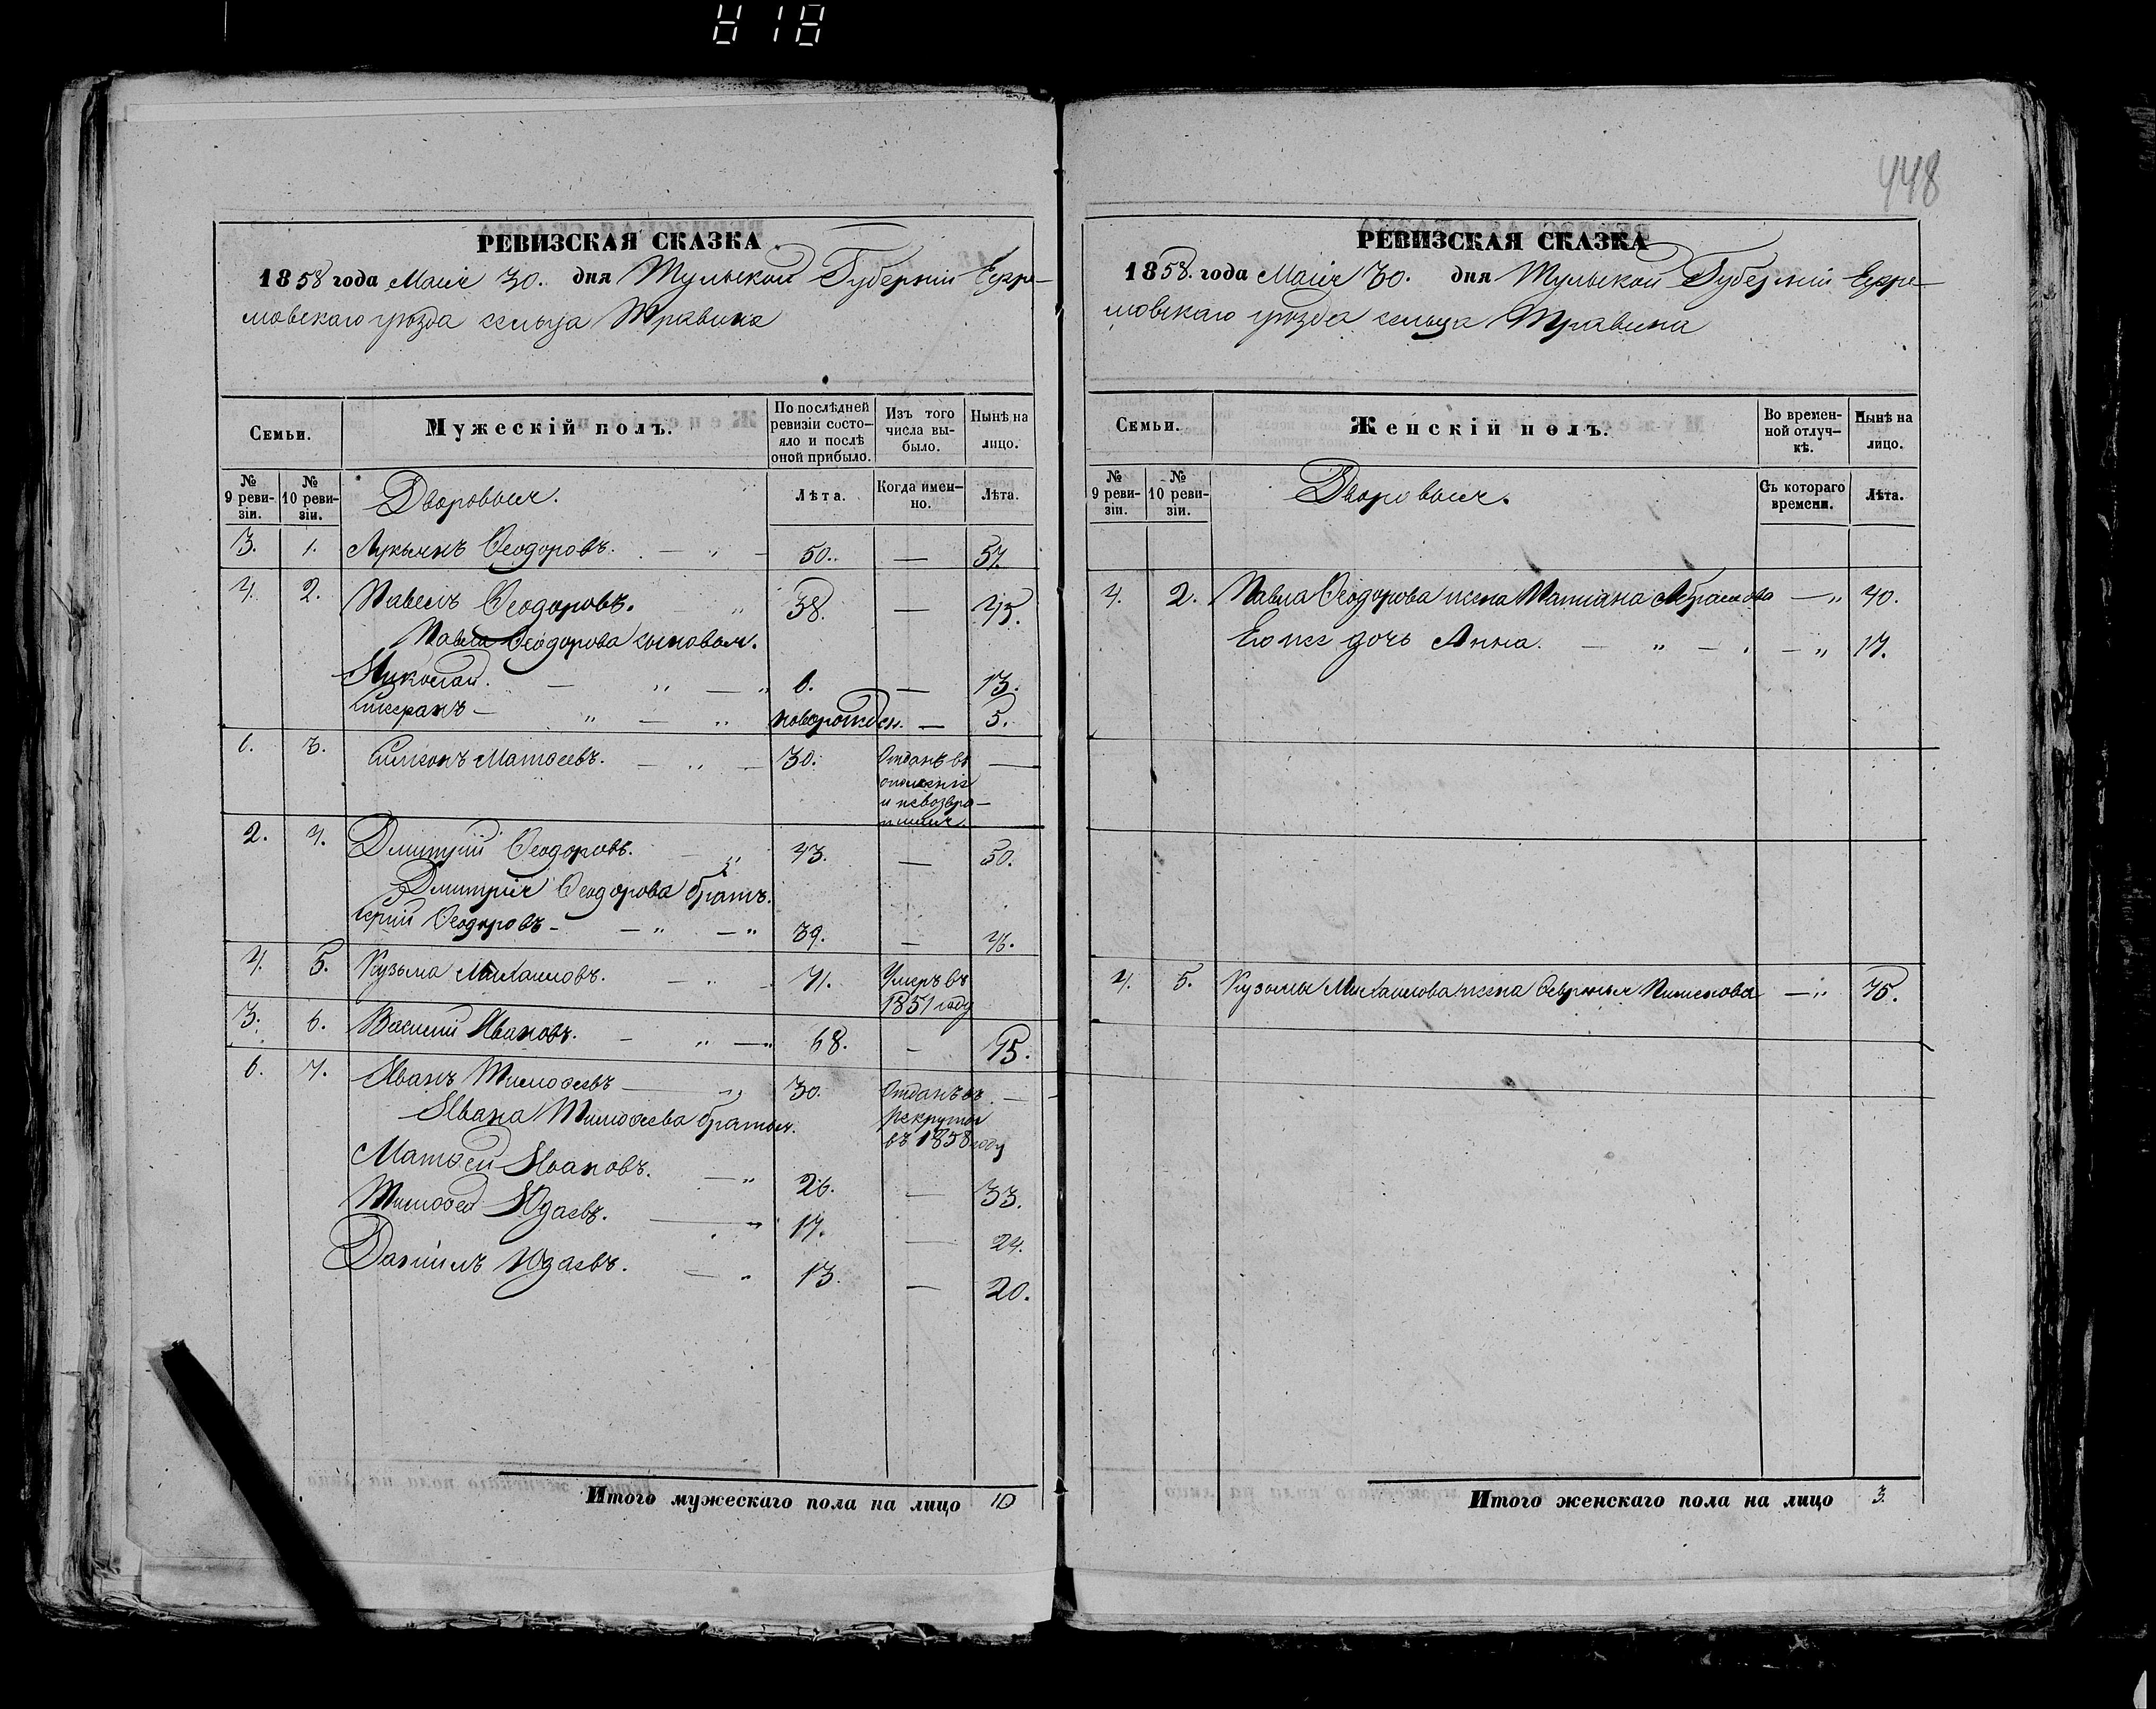 818
448
РЕВИЗСКАЯ СКАЗКА
1858 года Маія 30. дня Тульской Губерніи Ефре-
мовскаго уѣзда сельца Травина
Семьи.
Мужескій полъ.
По послѣдней ревизіи состо-яло и послѣ оной прибыло.
Изъ того числа вы-было.
Нынѣ на лицо.
№ 9 реви-зіи.
№ 10 реви-зіи.
Дворовыя.
Лѣта.
Когда имен-но.
Лѣта.
3. 1. Лукьянъ Ѳеодоровъ. — " — 50. — 57.
4. 2. Павелъ Ѳеодоровъ. " 38. — 45.
Павла Ѳеодорова сыновья.
Николай. — " — " 6. — 13.
— " — " новорожден. — 5.
6. 3. Симеонъ Матѳеевъ. — " — 30. Отданъ въ —
ополченіе
и невозвра-
тился.
2. 4. Дмитрій Ѳеодоровъ. — " 43. — 50.
Дмитрія Ѳеодорова братъ.
Ѳеодоровъ — — " — " 39. — 46.
4. 5. Кузьма Михайловъ. — " — 71. Умеръ въ
1851 году
3. 6. Василій Ивановъ. — " — " 68. — 75.
6. 7. Иванъ Тимоѳеевъ — " 30. Отданъ въ —
рекруты
въ 1858 году
Ивана Тимоѳеева братья.
Матѳей Ивановъ. — " 26. — 33.
Тимоѳей Юдаевъ. — " 17. — 24.
Даніилъ Юдаевъ. — " 13. — 20.
Итого мужескаго пола на лицо 10
РЕВИЗСКАЯ СКАЗКА
1858. года Маія 30. дня Тульской Губерніи Ефре-
мовскаго уѣзда сельца Травина
Семьи.
Женскій полъ.
Во времен-ной отлуч-кѣ.
Нынѣ на лицо.
№ 9 реви-зіи.
№ 10 реви-зіи.
Дворовыя.
Съ котораго времени.
Лѣта.
4. 2. Павла Ѳеодорова жена Татіана Абрамова — " 40.
Его же дочь Анна. — " — " — " 17.
4. 5. Кузьмы Михайлова жена Ѳевронья Пименова — " 75.
Итого женскаго пола на лицо 3.